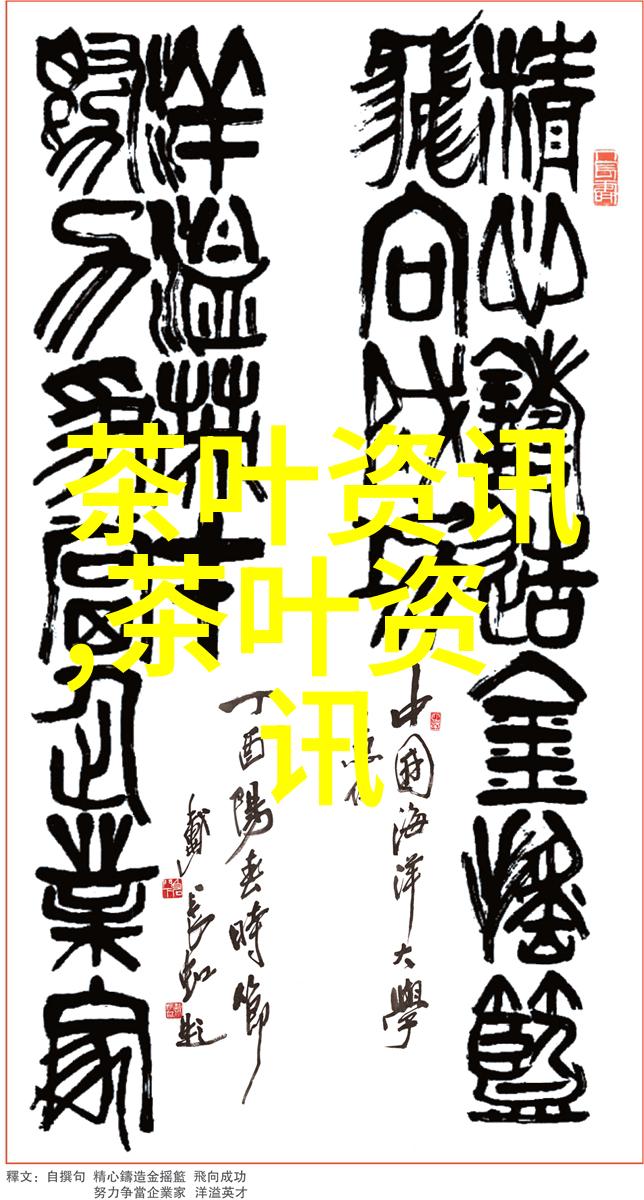 精心鑄造金摇籃
飛向成功
中國海洋大學
努力争當企業家
洋溢英才
丁酉陽春時節
戴長虹題
茶叶资讯
,茶叶资
讯
釋文：自撰句 精心鑄造金摇籃 飛向成功
努力争當企業家 洋溢英才